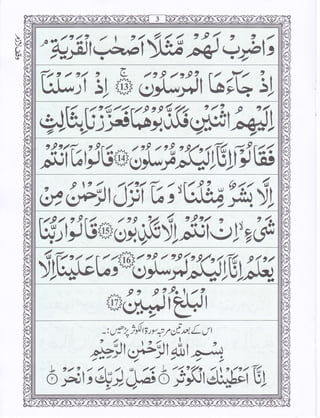 3
وَاضْرِبْ لَهُمْ مَّثَلًا أَصْحٰبَ الْقَرْيَةِ ۘ
إِذْ جَآءَهَا الْمُرْسَلُوْنَ ۚ ﴿13﴾ إِذْ أَرْسَلْنَآ
إِلَيْهِمُ اثْنَيْنِ فَكَذَّبُوْهُمَا فَعَزَّزْنَا بِثَالِثٍ
فَقَالُوْٓا إِنَّآ إِلَيْكُمْ مُّرْسَلُوْنَ ﴿14﴾ قَالُوْا مَآ أَنْتُمْ
إِلَّا بَشَرٌ مِّثْلُنَا ۙ وَمَآ أَنْزَلَ الرَّحْمٰنُ مِنْ
شَيْءٍ ۙ إِنْ أَنْتُمْ إِلَّا تَكْذِبُوْنَ ﴿15﴾ قَالُوْا رَبُّنَا
يَعْلَمُ إِنَّآ إِلَيْكُمْ لَمُرْسَلُوْنَ ﴿16﴾ وَمَا عَلَيْنَآ إِلَّا
الْبَلٰغُ الْمُبِيْنُ ﴿17﴾
اس کے بعد تین مرتبہ سورۃ الکوثر پڑھیں:۔
بِسْمِ اللّٰهِ الرَّحْمٰنِ الرَّحِيْمِ
إِنَّآ أَعْطَيْنٰكَ الْكَوْثَرَ ﴿١﴾ فَصَلِّ لِرَبِّكَ وَانْحَرْ ﴿٢﴾